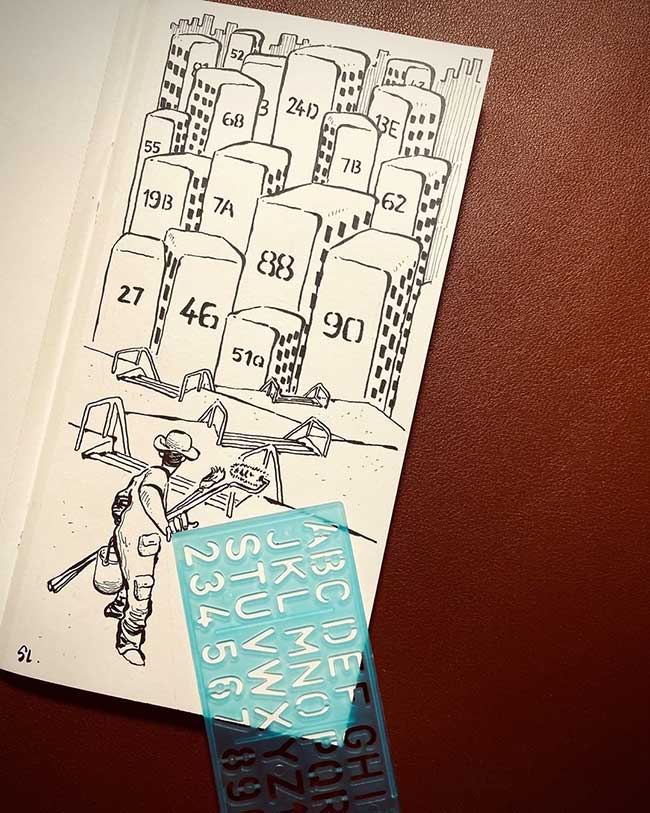 52
68
24D
13E
55
7B
19B
7A
62
88
27
46
90
51Q
ABCDEFGHI
JKLMNOPQR
STUVWXYZ
23456789
SL.